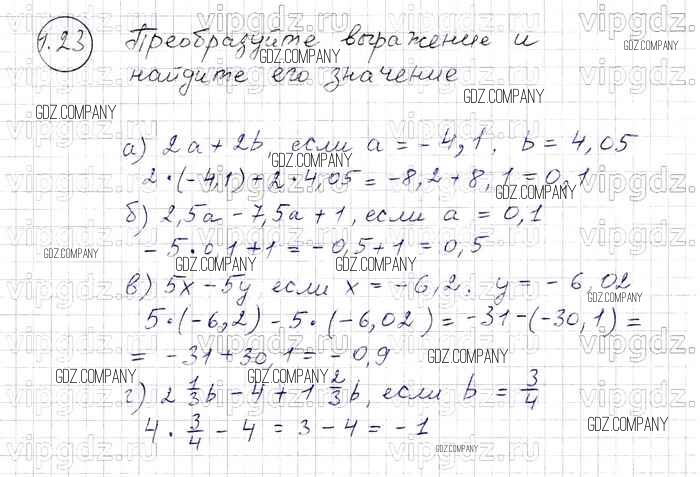 1.23 Преобразуйте выражение и
найдите его значение
а) 2a + 2b, если a = -4,1. b = 4,05
2·(-4,1) + 2·4,05 = -8,2 + 8,1 = 0,1
б) 2,5a - 7,5a + 1, если a = 0,1
-5·0,1 + 1 = -0,5 + 1 = 0,5
в) 5x - 5y если x = -6,2. y = -6,02
5·(-6,2) - 5·(-6,02) = -31 - (-30,1) =
= -31 + 30,1 = -0,9
г) 2 1/3 b - 4 + 1 2/3 b, если b = 3/4
4·3/4 - 4 = 3 - 4 = -1
GDZ.COMPANY
vipgdz.ru